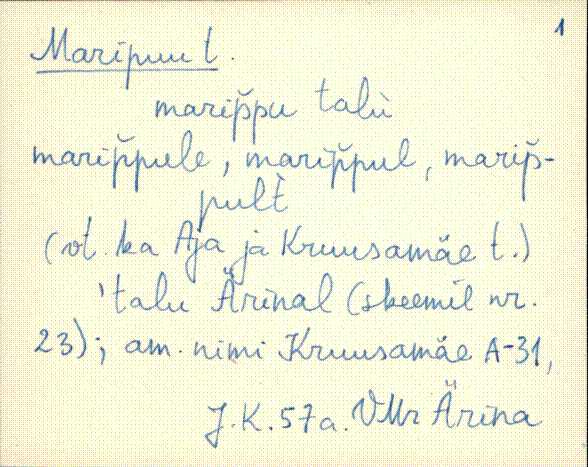 1
Maripuu t.
marip̆pu talù
marip̆pule, marip̆pul, marip̆-
pult̀
(vt. ka Aja ja Kruusamäe t.)
'talu Ärinal (skeemil nr.
23); am. nimi Kruusamäe A-31,
J.K. 57a. VMr Ärina